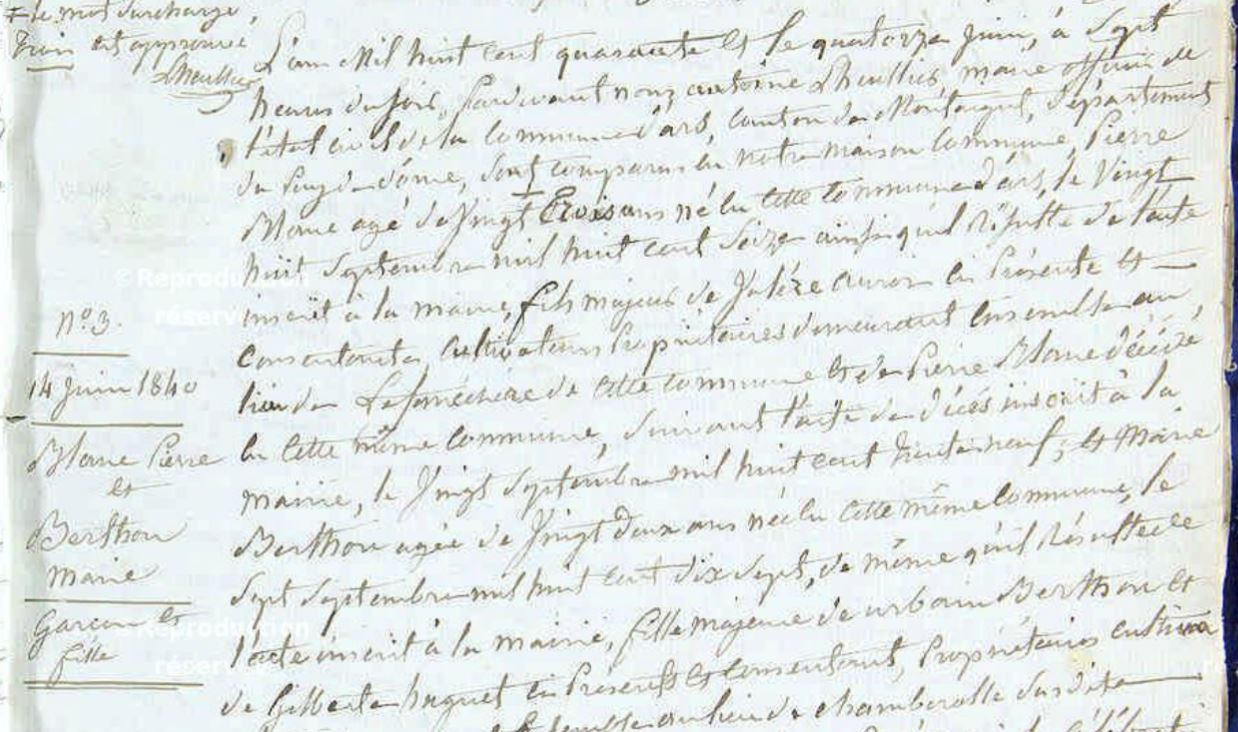 le mot surchargé,
Juin est approuvé
Lheullier
L'an Mil huit cent quarante et le quatorze Juin, à Sept
heures du soir, Pardevant nous antoine Lheullier maire officier de
l'état civil de la Commune d'ars, Canton de Montaigut, département
du Puy de dôme, sont comparus en notre maison Commune, Pierre
agé de Vingt trois ans né en Cette Commune d'ars, le Vingt
huit Septembre mil huit cent Seize ainsi qu'il Résulte de l'acte
inscrit à la mairie, fils majeur de en Présente et
Consentante Cultivateurs Propriétaires demeurant Ensemble au
lieu de de Cette Commune et de Pierre décédé
en Cette même Commune, Suivant l'acte de décès inscrit à la
mairie, le Vingt Septembre mil huit cent trente neuf; et Marie
Berthon agée de Vingt deux ans née en Cette même Commune, le
Sept Septembre mil huit cent dix Sept, de même qu'il Résulte de
l'acte inscrit à la mairie, fille majeure de urbain Berthon et
de Gilberte huguet en Présents et Consentants, Propriétaires cultiva
Ensemble au lieu de chamberolle Susdite
n° 3.
14 Juin 1840
Pierre
et
Berthon
Marie
Garçon et
fille
© Reproduction
réserv
© Reproduction
réserv